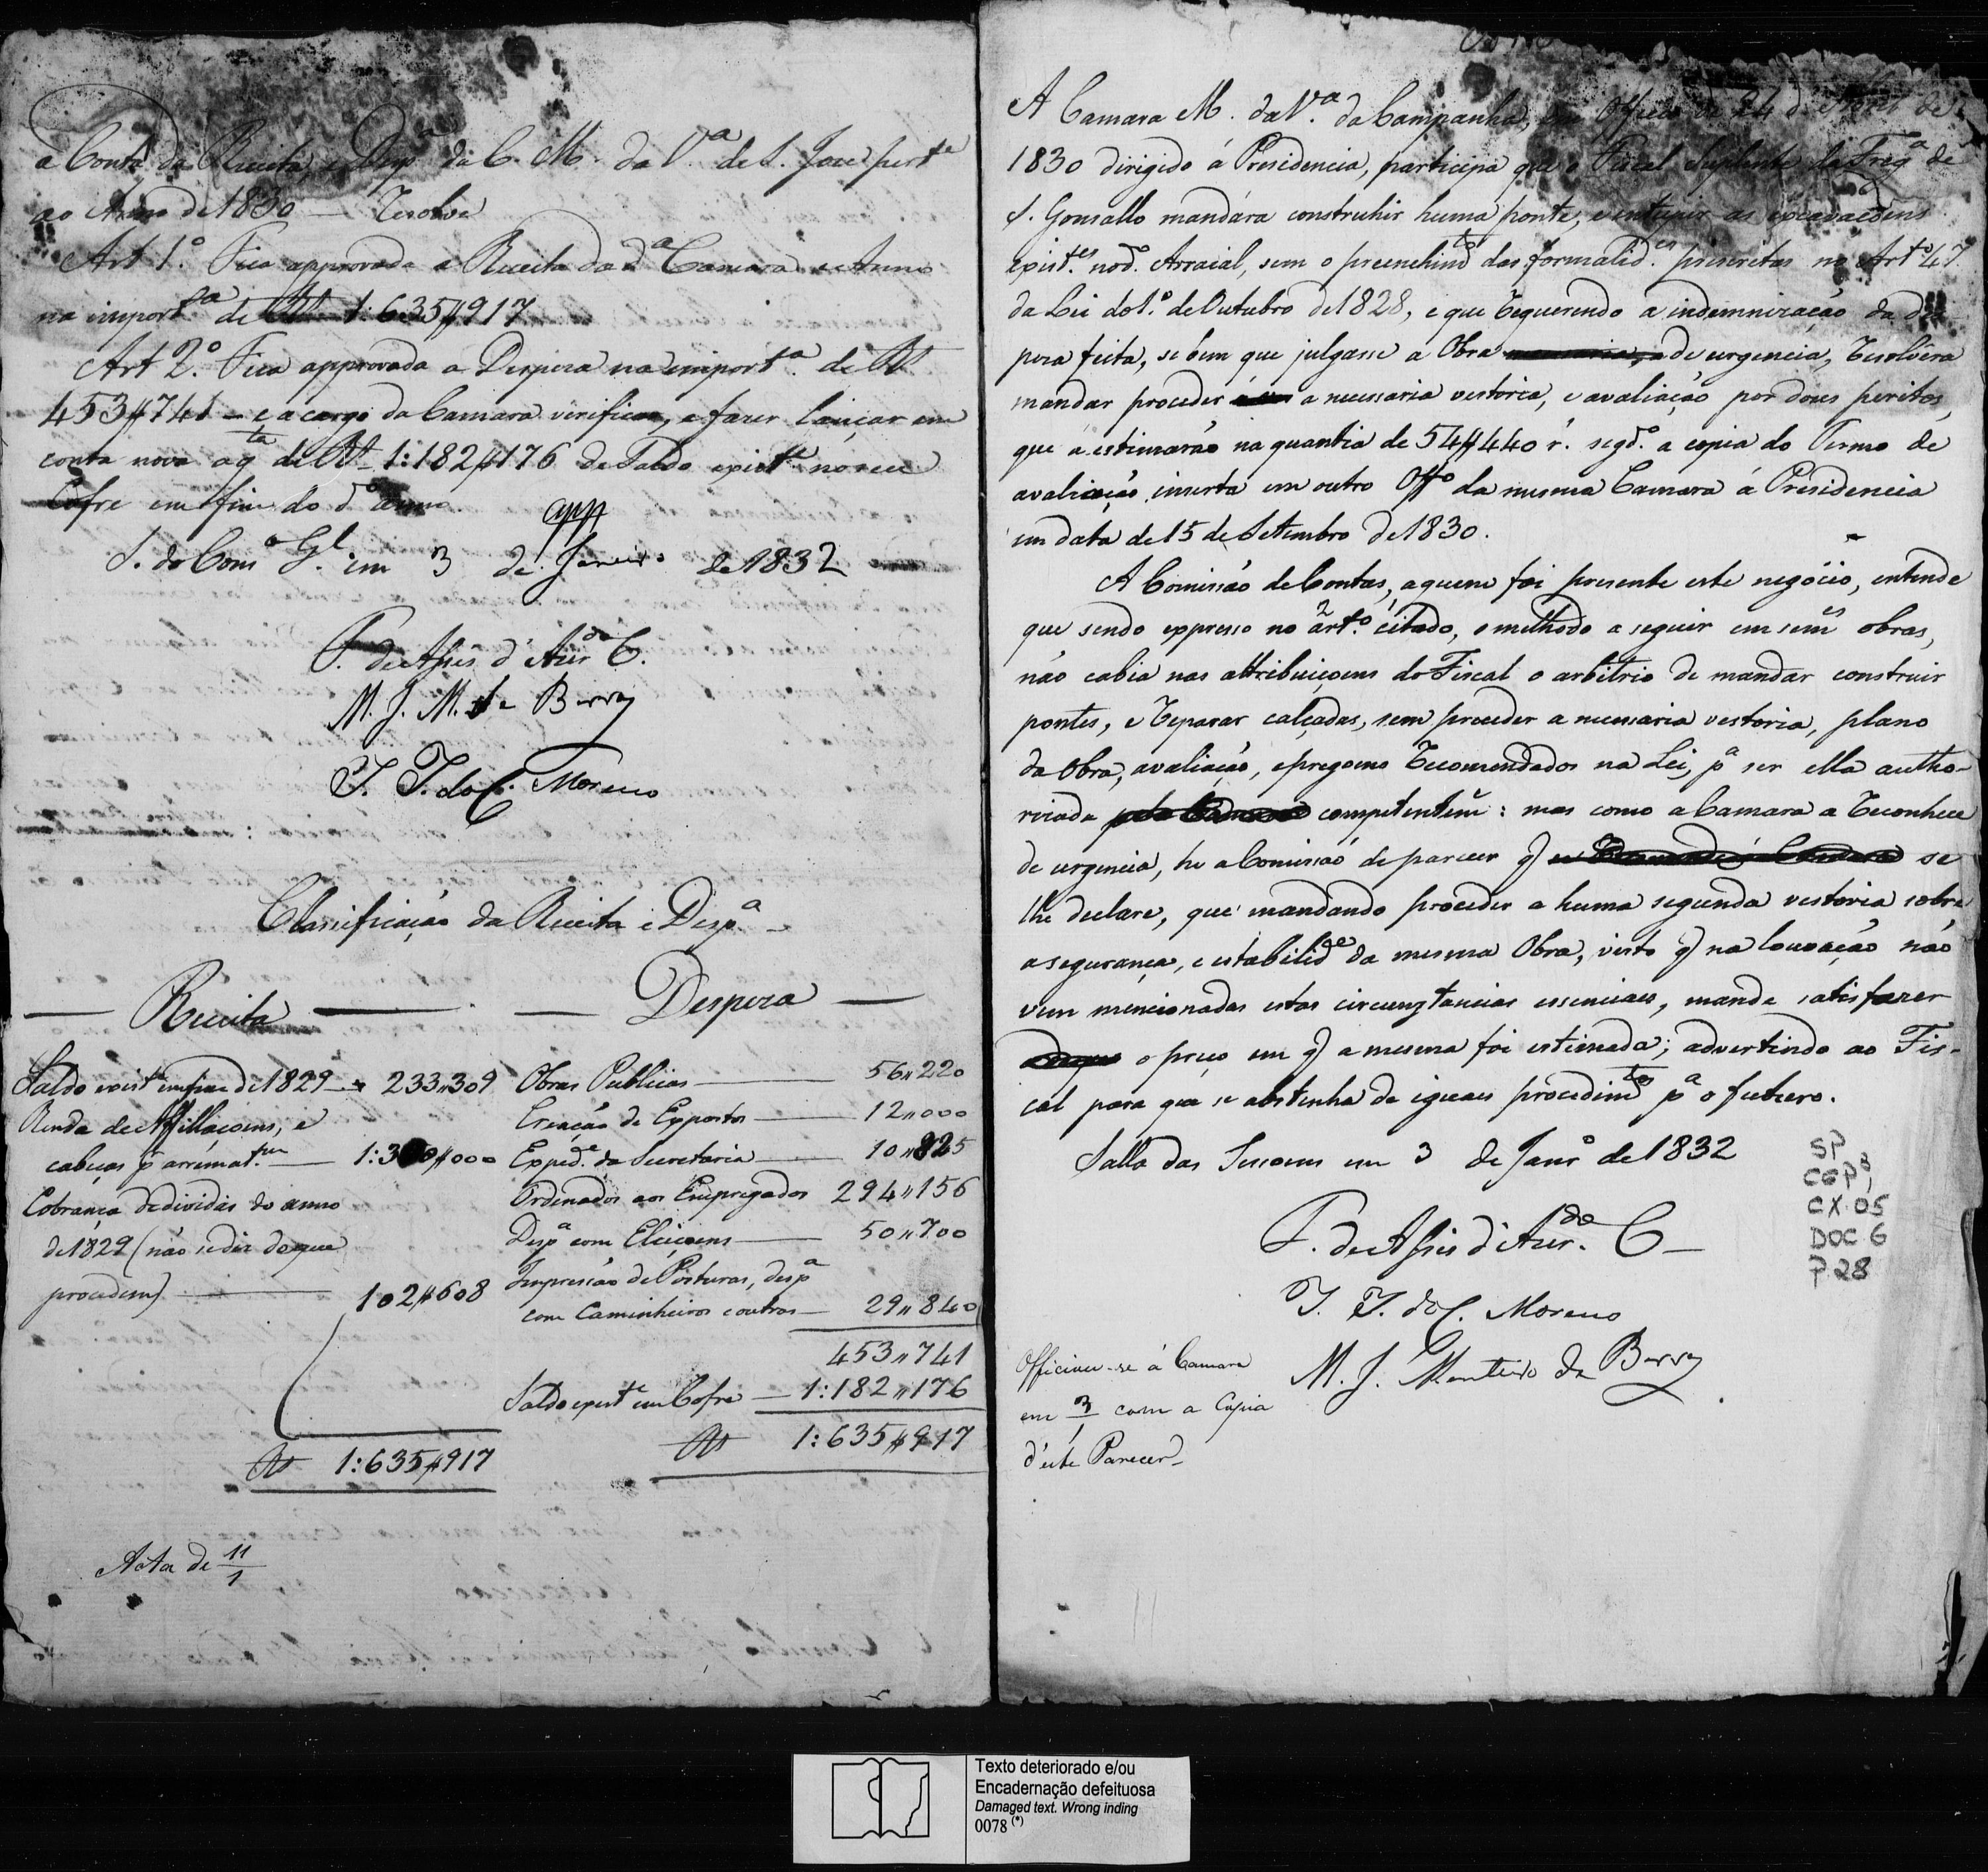 a Conta da Receita, e Desp.ª da C. M. da V.ª de S. Joze pert.e
ao Anno de 1830 — Resolve
Art 1.º Fica approvada a Receita da d.ª Camara e Anno
na import.ª de R$ 1:635$917
Art 2.º Fica approvada a Despeza na import.ª de R$
453$741 — e a cargo da Camara verificar, e fazer lançar em
conta nova a q.ta de R$ 1:182$176 de Saldo exist.e no seu
Cofre em fim do d.º anno.
app
S. do Cons.º G.l em 3 de Janeiro de 1832
F. de Assis d'Azer.do C.
M. J. M. de Barros
J. J. do C. Moreno
Classificação da Receita e Desp.ª
Receita
Saldo exist.e em fim de 1829 — 233"309
Renda de Affilaçoens, e
cabeças p.r arremat.am — 1:300$000
Cobrança de dividas do anno
de 1829 (não se diz do que
procedem) — 102$608
R$ 1:635$917
Despeza
Obras Publicas — 56"220
Creação de Expostos — 12"000
Exped.e da Secretaria — 10"825
Ordenados aos Empregados 294"156
Desp.ª com Eleiçoens — 50"700
Impressão de Posturas, desp.ª
com Caminheiros e outras — 29"840
453"741
Saldo exist.e em Cofre — 1:182"176
R$ 1:635$917
Acta de 11/1
A Camara M. da V.ª da Campanha, em Officio de 24 de Abril de
1830 dirigido á Presidencia, participa que o Fiscal Suplente da Freg.ª de
S. Gonsallo mandára construhir huma ponte, e entupir as excavaçoens
exist.es no d.º Arraial, sem o preenchim.to das formalid.es prescritas no Art.º 47
da Lei do 1.º de Outubro de 1828, e que requerendo a indemnização da des
peza feita, se bem que julgasse a Obra necessaria, e de urgencia, resolvêra
mandar proceder a necessaria vestoria, e avaliação por dous peritos,
que a estimarão na quantia de 54$440 r.s segd.º a copia do Termo de
avaliação inserta em outro Off.º da mesma Camara á Presidencia
em data de 15 de Setembro de 1830.
A Comissão de Contas, a quem foi presente este negócio, entende
que sendo expresso no art.º citado, o methodo a seguir em sem.es obras,
não cabia nas attribuiçoens do Fiscal o arbitrio de mandar construir
pontes, e reparar calçadas, sem preceder a necessaria vestoria, plano
da obra, avaliação, e pregoens recomendados na Lei, p.ª ser ella autho-
rizada pela Camara competentem.e: mas como a Camara a reconhece
de urgencia, he a Comissão de parecer q se
lhe declare, que mandando proceder a huma segunda vestoria sobre
a segurança, e estabilid.e da mesma Obra, visto q na louvação não
vem mencionadas estas circunstancias essenciaes, mande satisfazer
o preço em q a mesma foi estimada; advertindo ao Fis-
cal para que se abstenha de iguaes procedim.tos p.ª o futuro.
Salla das Sessoens em 3 de Janr.º de 1832
F. de Assis d'Azer.do C—
J. J. do C. Moreno
M. J. Monteiro de Barros
Officiou-se á Camara
em 3/1 com a Copia
d'este Parecer
SP
CGP³
CX.05
DOC 6
P 28
Texto deteriorado e/ou
Encadernação defeituosa
Damaged text. Wrong inding
0078 (*)